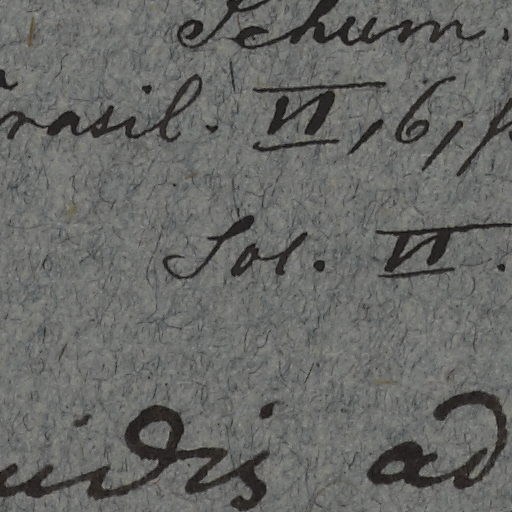 Schum.
rasil. VI, 6, p
Sol. VI.
uidis ad